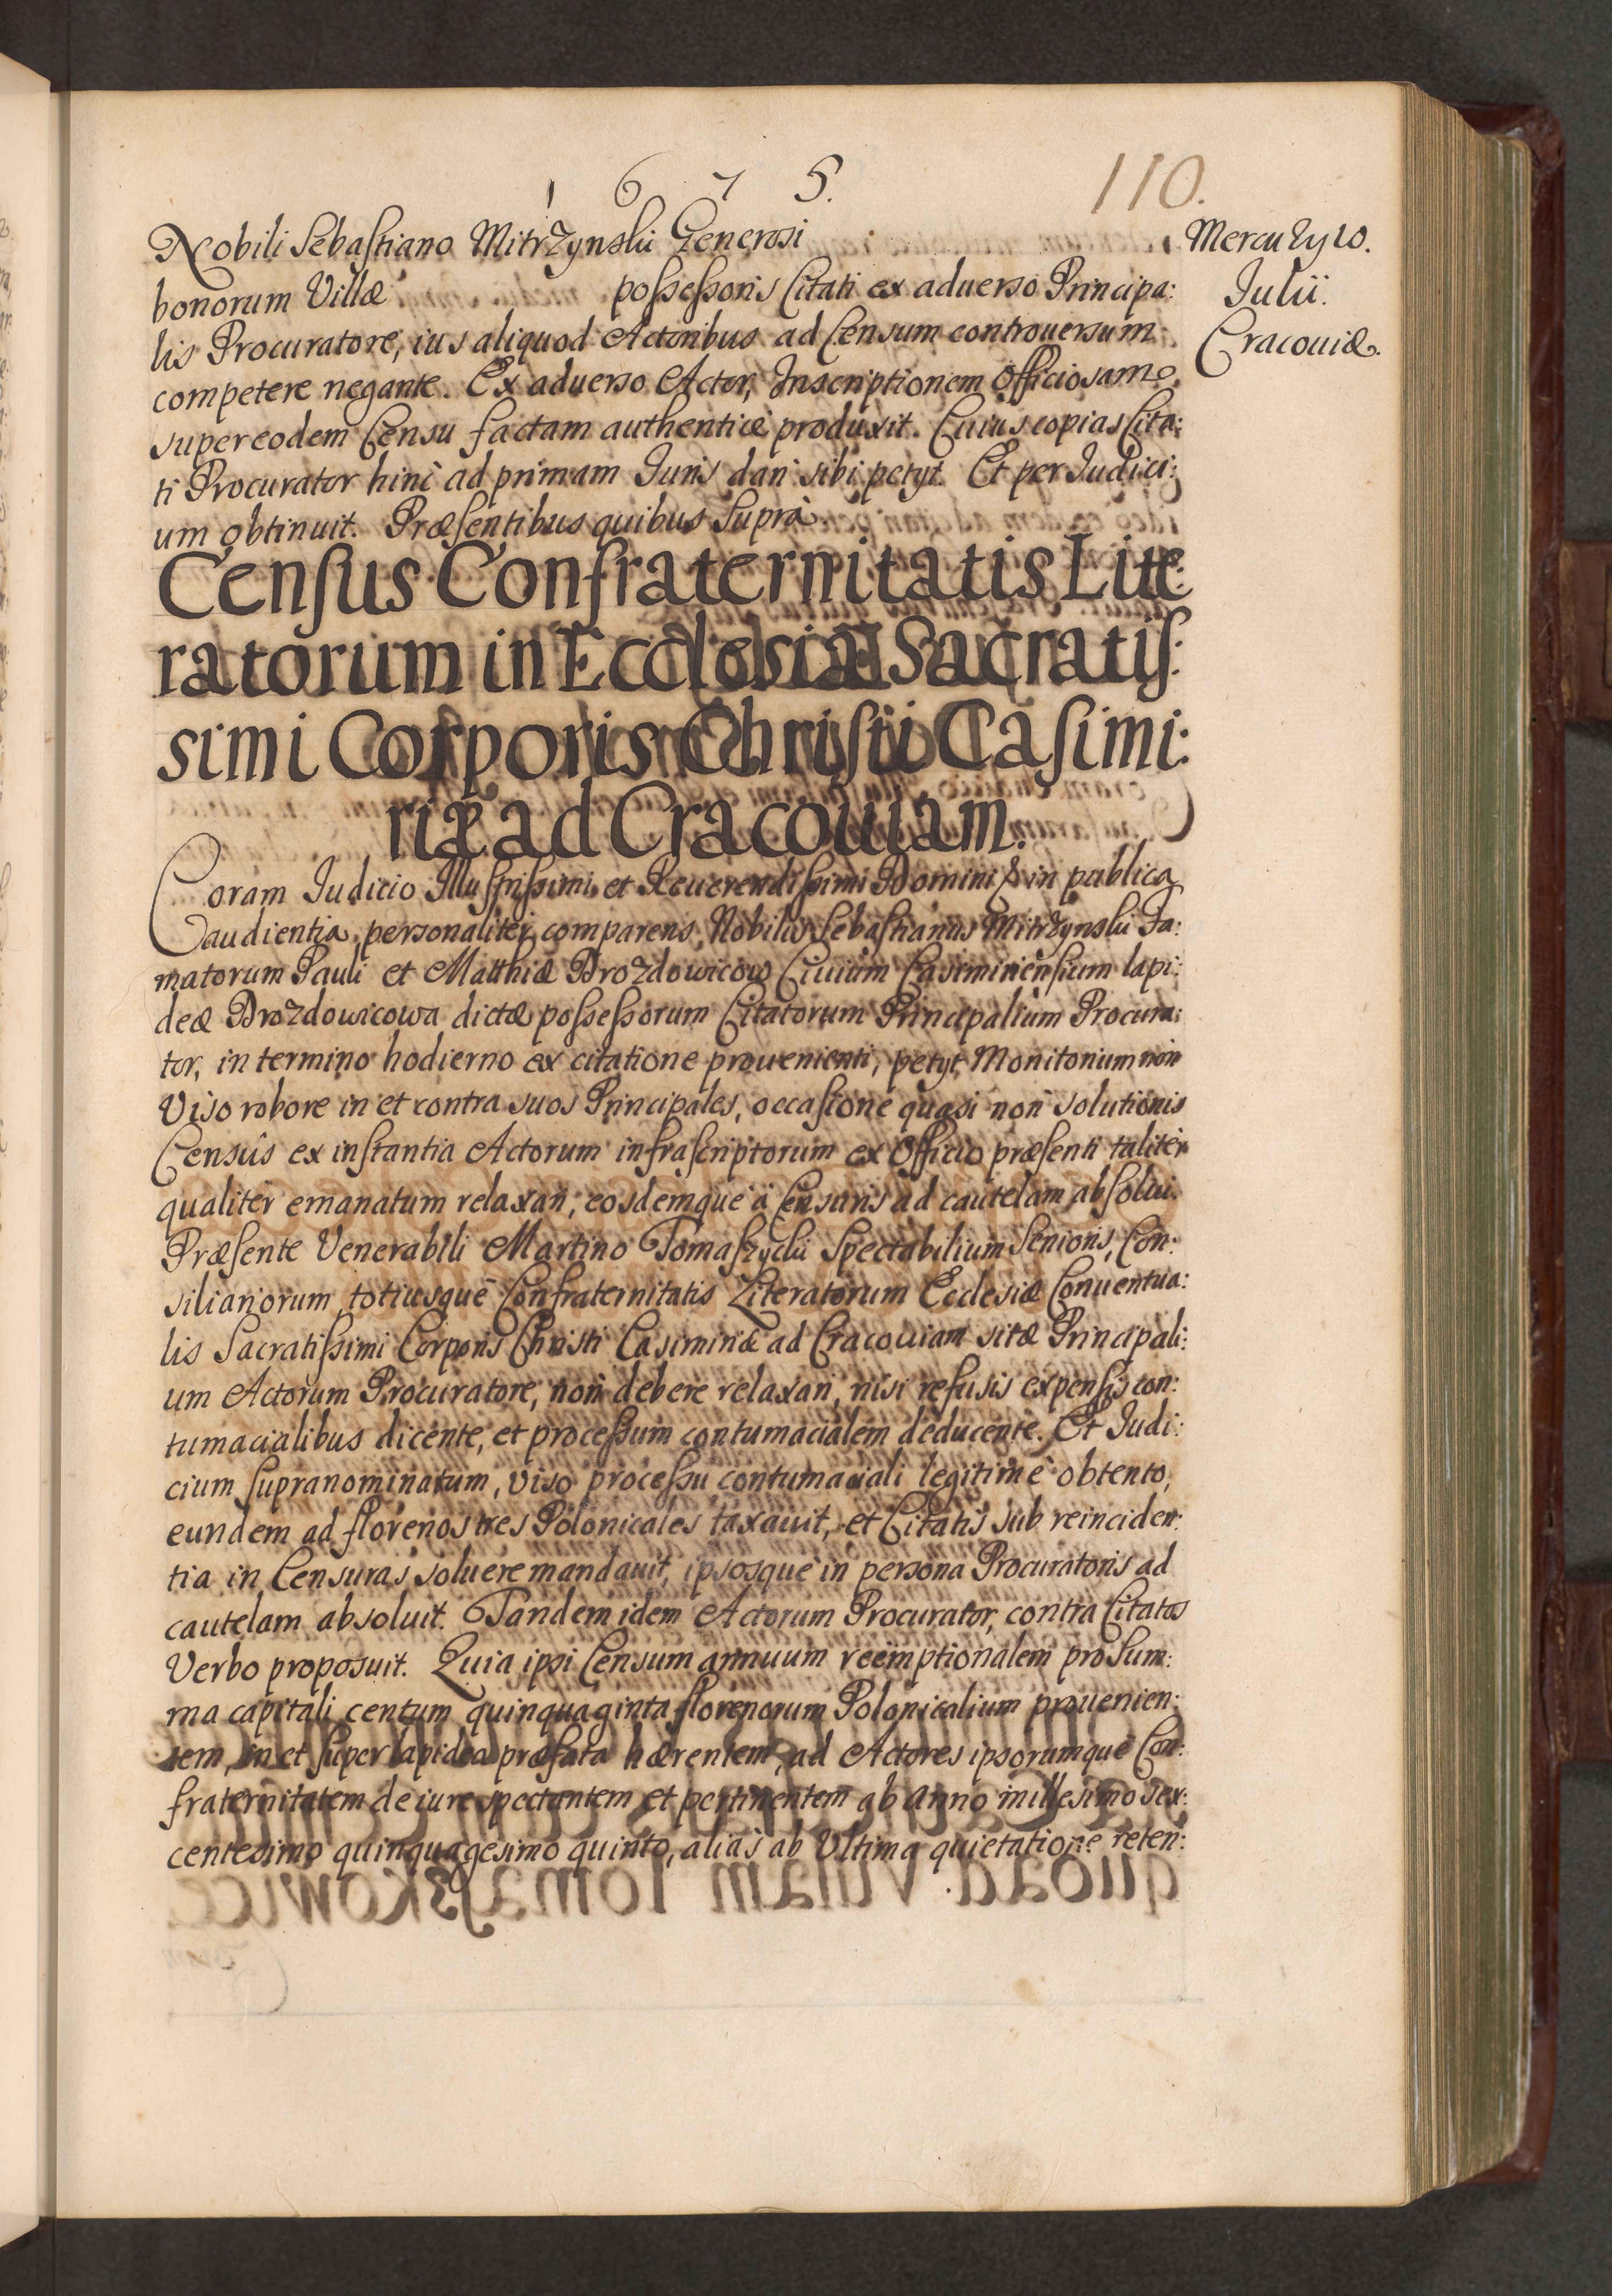 1 6 7 5.
110.
Nobili Sebastiano Mitrzynski Generosi
bonorum Villæ possessoris Citati ex aduerso Principa:
lis Procuratore, ius aliquod Actoribus ad Censum controuersum
competere negante. Ex aduerso Actor, Inscriptionem Officiosam
super eodem Censu factam authenticè produxit. Cuius copias Cita:
ti Procurator hinc ad primam Iuris dari sibi petyt. Et per Iudici:
um obtinuit. Præsentibus quibus Suprà.
Mercurÿ 10.
Iulii.
Cracouiæ.
Census Confraternitatis Litte:
ratorum in Ecclesia Sacratis:
simi Corporis Christi Casimi:
riæ ad Cracouiam.
Coram Iudicio Illustrissimi et Reuerendissimi Domini & in publica
audientia personaliter comparens Nobilis Sebastianus Mitrzynski Fa:
matorum Pauli et Matthiæ Drozdowicow Ciuium Casimiriensium lapi:
deæ Drozdowicowa dictæ possessorum Citatorum Principalium Procura:
tor, in termino hodierno ex citatione prouenienti, petyt Monitorium non
Viso robore in et contra suos Principales, occasione quasi non solutionis
Censûs ex instantia Actorum infrascriptorum ex Officio præsenti taliter
qualiter emanatum relaxari, eosdemque à Censuris ad cautelam absolui.
Præsente Venerabili Martino Tomaszycki Spectabilium Senioris, Con:
siliariorum totiusque Confraternitatis Literatorum Ecclesiæ Conuentua:
lis Sacratissimi Corporis Christi Casimiriæ ad Cracouiam sitæ Principali:
um Actorum Procuratore, non debere relaxari, nisi refusis expensis con:
tumacialibus dicente, et processum contumacialem deducente. Et Iudi:
cium supranominatum, viso processu contumaciali legitimè obtento,
eundem ad florenos tres Polonicales taxauit, et Citatis sub reinciden:
tia in Censuras soluere mandauit, ipsosque in persona Procuratoris ad
cautelam absoluit. Tandem idem Actorum Procurator, contra Citatos
Verbo proposuit. Quia ipsi Censum annuum reëmptionalem pro Sum:
ma capitali centum quinquaginta florenorum Polonicalium prouenien:
tem, in et super lapidea præfata hærentem, ad Actores ipsorumque Con:
fraternitatem de iure spectantem et pertinentem ab anno millesimo sex:
centesimo quinquagesimo quinto, alias ab Vltima quietatione reten: